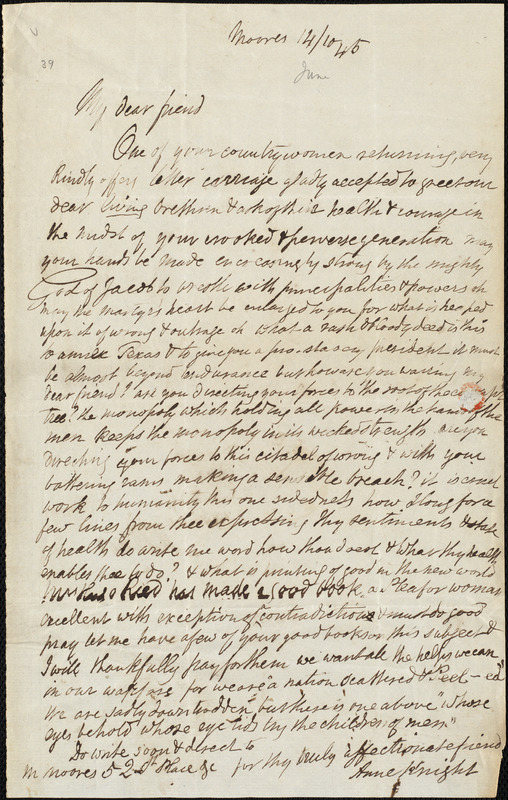 39
Moores 14/10 45
June
My dear friend
One of your countrywomen returning, very
kindly offers letter carriage gladly accepted to greet our
dear living brethren & ask of their health & courage in
the midst of your crooked & perverse generation may
your hands be made encreasingly strong by the mighty
God of Jacob to wrestle with principalities & powers oh
may the martyr's heart be enlarged to you for what is heaped
upon it of wrong & outrage oh what a rash & bloody deed is this
to annex Texas & to give you a pro-slavery president it must
be almost beyond endurance but how are you warring my
dear friend? are you directing your forces to the root of the
tree? the monopoly which holding all power in the hands of the
men keeps the monopoly in its wicked strength are you
directing your forces to this citadel of wrong & with your
battering rams making a sensible breach? it is cruel
work to humanity this one sidedness how I long for a
few lines from thee expressing thy sentiments & state
of health do write me word how thou dost & what thy health
enables thee to do? & what is printing of good in the new world
Reid has made a good book, a plea for woman
excellent with exception of contradictions & must do good
pray let me have a few of your good books on this subject &
I will thankfully pay for them we want all the helps we can
in our warfare for we are "a nation scattered & Peel-ed"
We are sadly down trodden but there is one above "whose
eyes behold whose eye lids try the children of men"
Do write soon & direct to
M Moores 5 2 Place &c for thy truly affectionate friend
Anne Knight